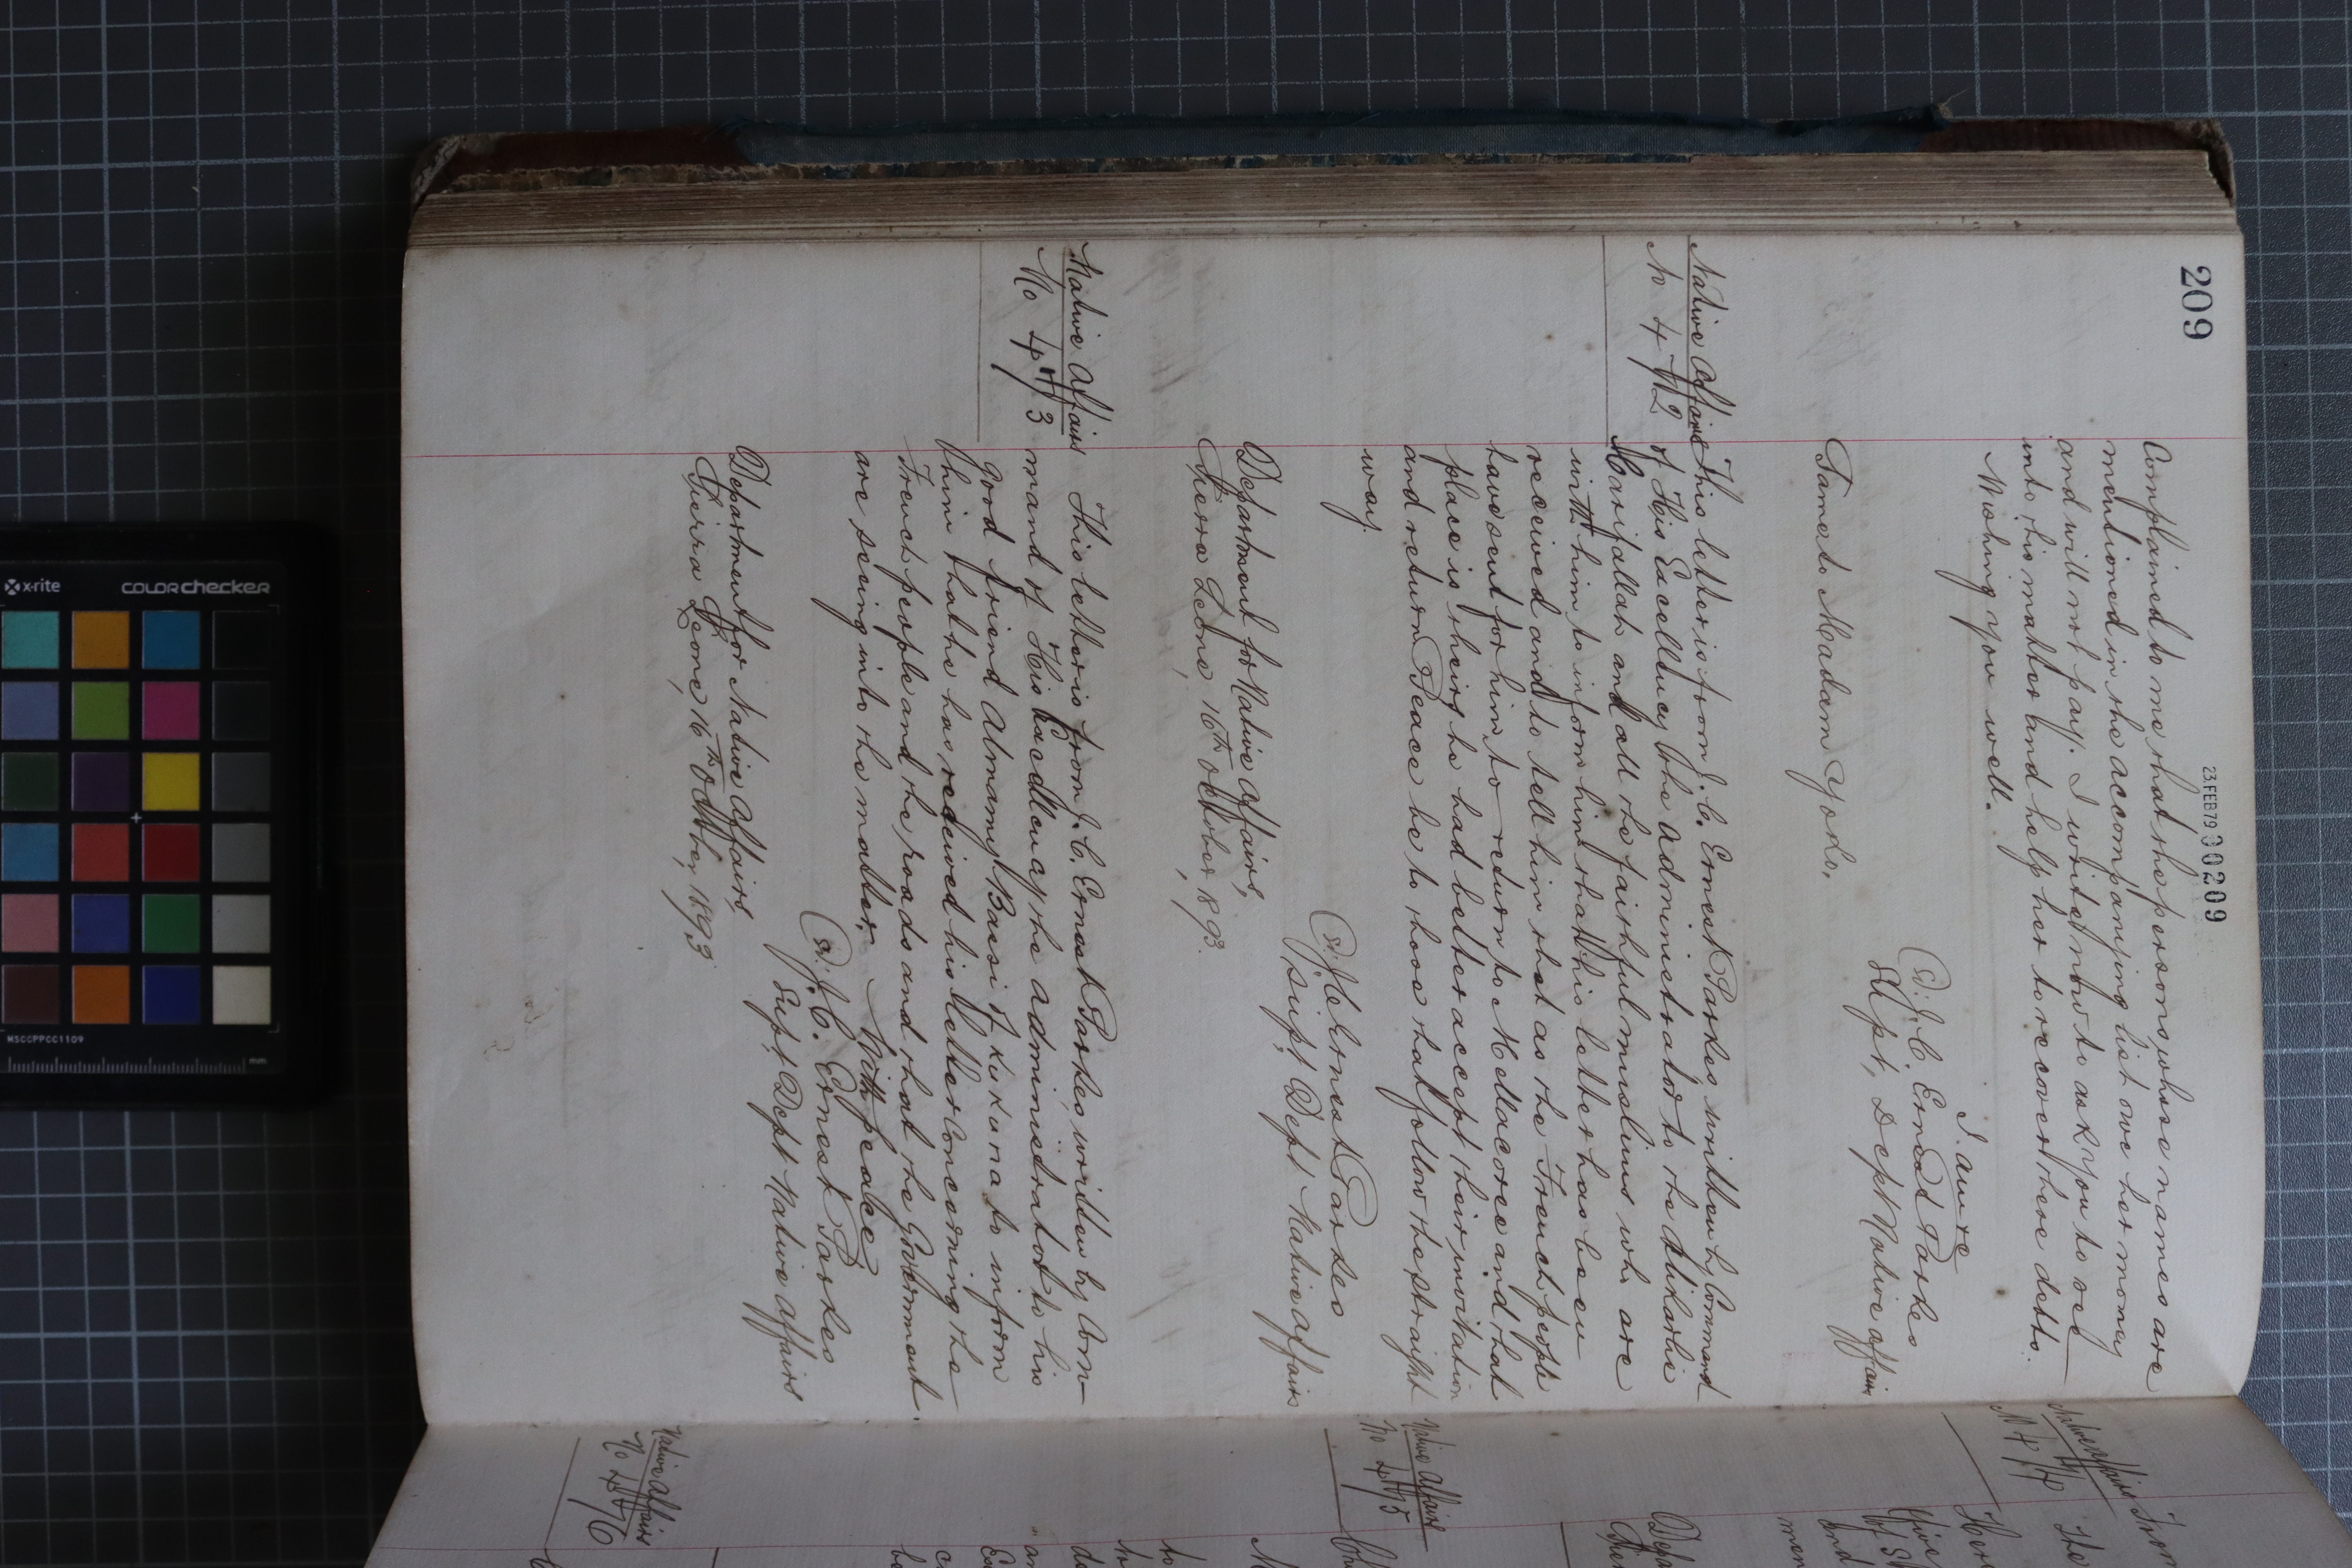 209
23.FEB79 00209
Complained to me that the persons whose names are
mentioned in the accompanying list owe her money
and will not pay. I write now to ask you to see
into this matter and help her to recover these debts.
Wishing you well.
I am
J. C. Ernest Parkes
Supt, Dept Native Affairs
Madam Yoko.
Native Affairs
No 472
This letter is from J. C. Ernest Parkes written by Command
of His Excellency the Administrator to the Alikarlie
and all the faithful muslims who are
with him to inform him that his letter has been
received and to tell him that as the French people
have sent for him to return to Mellacoree and that
place is theirs he had better accept their invitation
and return Peace be to those that follow the straight
way.
(Sd.) J. C. Ernest Parkes
Supt Dept Native Affairs
Department for Native Affairs,
Sierra Leone, 16th October, 1893.
Native Affairs
No 473
This letter is from J. C. Ernest Parkes, written by Com-
mand of His Excellency the Administrator to his
good friend Almamy Bassi of Kukuna to inform
him that he has received his letter concerning the
French people and the roads and that the Government
are seeing into the matter. With peace
(Sd.) J. C. Ernest Parkes
Supt Dept Native Affairs
Department for Native Affairs,
Sierra Leone, 16th October, 1893
Native Affairs
Native Affairs
No 475
Native Affairs
No 476